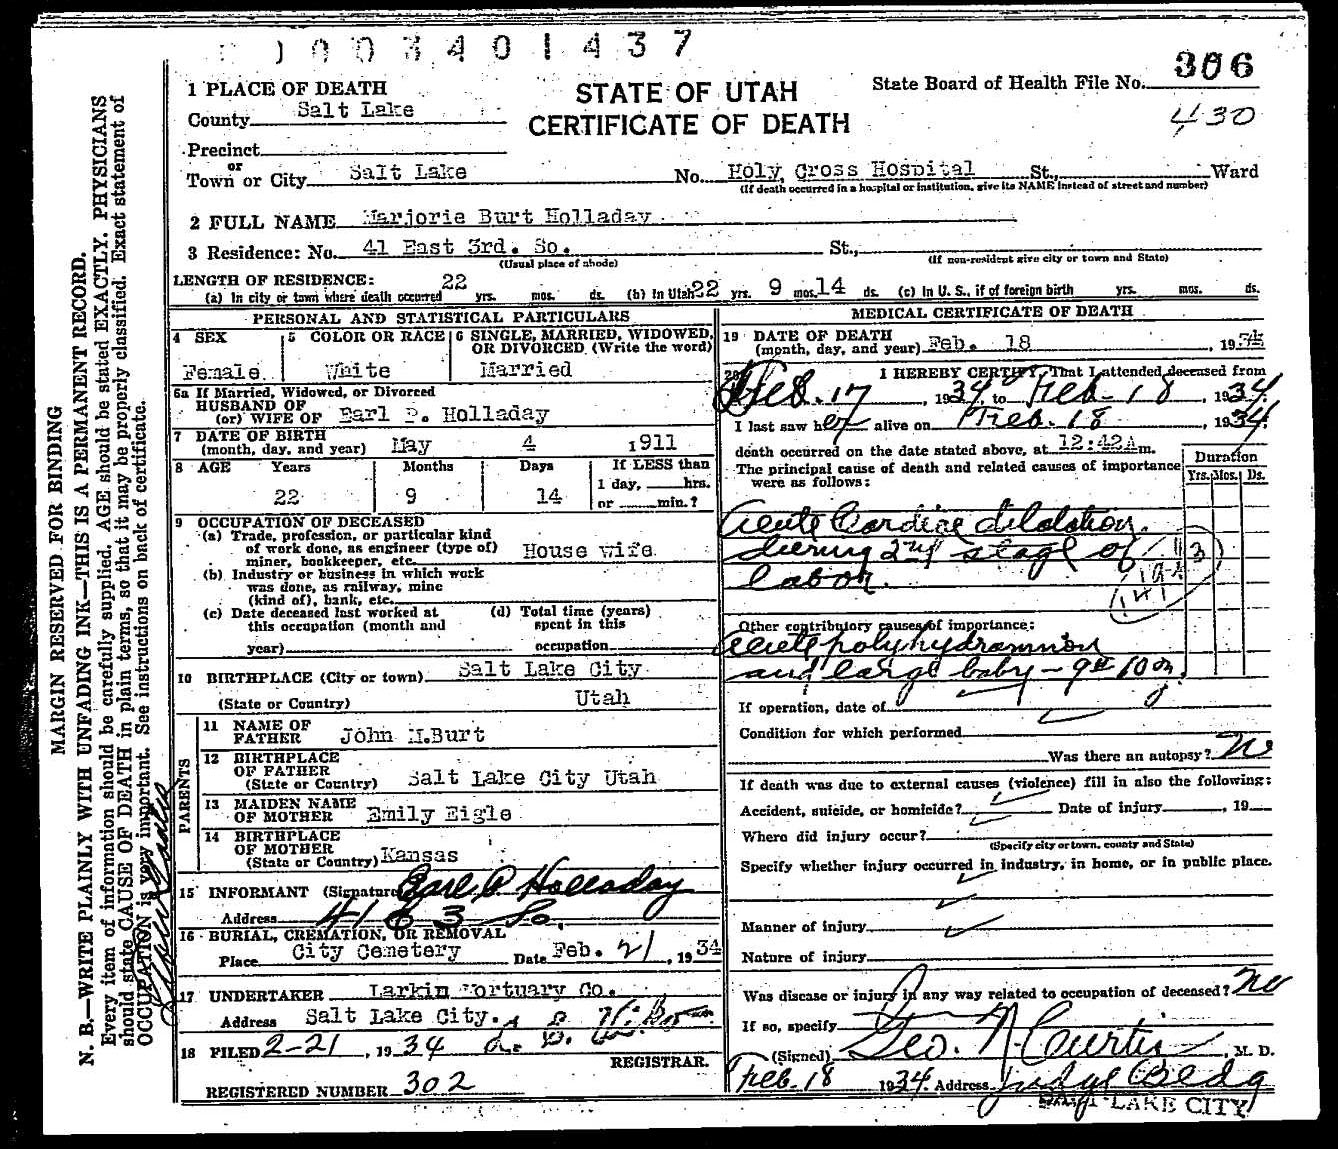 0003401437
306
STATE OF UTAH
CERTIFICATE OF DEATH
State Board of Health File No.
430
1 PLACE OF DEATH
County Salt Lake
Precinct
or
Town or City Salt Lake No. Holy Cross Hospital St., Ward
(If death occurred in a hospital or institution, give its NAME instead of street and number)
2 FULL NAME Marjorie Burt Holladay
3 Residence: No. 41 East 3rd. So. St.,
(Usual place of abode) (If non-resident give city or town and State)
LENGTH OF RESIDENCE:
(a) In city or town where death occurred 22 yrs. mos. ds. (b) In Utah 22 yrs. 9 mos. 14 ds. (c) In U. S., if of foreign birth yrs. mos. ds.
PERSONAL AND STATISTICAL PARTICULARS
4 SEX 5 COLOR OR RACE 6 SINGLE, MARRIED, WIDOWED, OR DIVORCED (Write the word)
Female White Married
6a If Married, Widowed, or Divorced
HUSBAND OF
(or) WIFE OF Earl P. Holladay
7 DATE OF BIRTH
(month, day, and year) May 4 1911
8 AGE Years Months Days If LESS than
1 day, hrs.
22 9 14 or min.?
9 OCCUPATION OF DECEASED
(a) Trade, profession, or particular kind
of work done, as engineer (type of)
miner, bookkeeper, etc. House wife
(b) Industry or business in which work
was done, as railway, mine
(kind of), bank, etc.
(c) Date deceased last worked at
this occupation (month and
year)
(d) Total time (years)
spent in this
occupation
10 BIRTHPLACE (City or town) Salt Lake City
(State or Country) Utah
PARENTS
11 NAME OF
FATHER John H. Burt
12 BIRTHPLACE
OF FATHER
(State or Country) Salt Lake City Utah
13 MAIDEN NAME
OF MOTHER Emily Eigle
14 BIRTHPLACE
OF MOTHER
(State or Country) Kansas
15 INFORMANT (Signature) Earl P. Holladay
Address 41 E 3 So.
16 BURIAL, CREMATION, OR REMOVAL
Place City Cemetery Date Feb. 21, 1934
17 UNDERTAKER Larkin Mortuary Co.
Address Salt Lake City.
18 FILED 2-21, 1934
REGISTRAR.
REGISTERED NUMBER 302
MEDICAL CERTIFICATE OF DEATH
19 DATE OF DEATH
(month, day, and year) Feb. 18, 1934
20 I HEREBY CERTIFY, That I attended deceased from
Feb. 17, 1934, to Feb-18, 1934.
I last saw her alive on Feb. 18, 1934.
death occurred on the date stated above, at 12:42A m.
The principal cause of death and related causes of importance
were as follows:
Duration
Yrs. Mos. Ds.
Acute Cardiac dilatation
during 2nd stage of
labor.
Other contributory causes of importance:
Acute polyhydramnion
and large baby - 9# 10 oz
If operation, date of
Condition for which performed
Was there an autopsy? No
If death was due to external causes (violence) fill in also the following:
Accident, suicide, or homicide? Date of injury, 19
Where did injury occur?
(Specify city or town, county and State)
Specify whether injury occurred in industry, in home, or in public place.
Manner of injury
Nature of injury
Was disease or injury in any way related to occupation of deceased? No
If so, specify
(Signed) Geo. N. Curtis, M. D.
Feb. 18 1934. Address Judge Bldg
SALT LAKE CITY
MARGIN RESERVED FOR BINDING
N. B.—WRITE PLAINLY WITH UNFADING INK—THIS IS A PERMANENT RECORD.
Every item of information should be carefully supplied. AGE should be stated EXACTLY. PHYSICIANS
should state CAUSE OF DEATH in plain terms, so that it may be properly classified. Exact statement of
OCCUPATION is very important. See instructions on back of certificate.